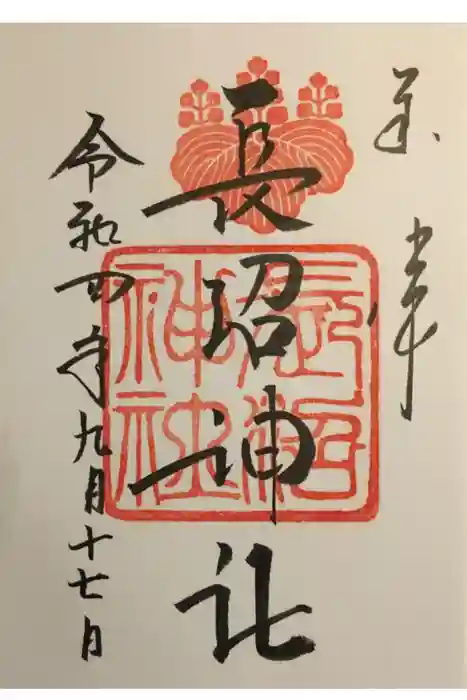 奉拝
長沼神社
長沼神社
令和四年九月十七日